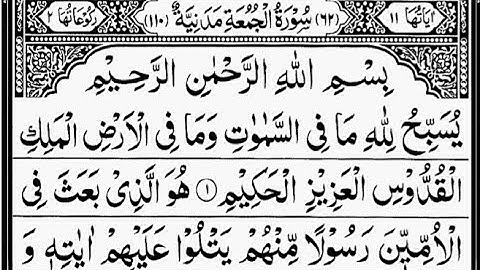 اٰیَاتُهَا ١١ (٦٢) سُوْرَةُ الْجُمُعَةِ مَدَنِیَّةٌ (١١٠) رُكُوْعَاتُهَا ٢
بِسْمِ اللّٰهِ الرَّحْمٰنِ الرَّحِیْمِ
یُسَبِّحُ لِلّٰهِ مَا فِی السَّمٰوٰتِ وَمَا فِی الْاَرْضِ الْمَلِكِ
الْقُدُّوْسِ الْعَزِیْزِ الْحَكِیْمِ ۝١ هُوَ الَّذِیْ بَعَثَ فِی
الْاُمِّیّٖنَ رَسُوْلًا مِّنْهُمْ یَتْلُوْا عَلَیْهِمْ اٰیٰتِهٖ وَ